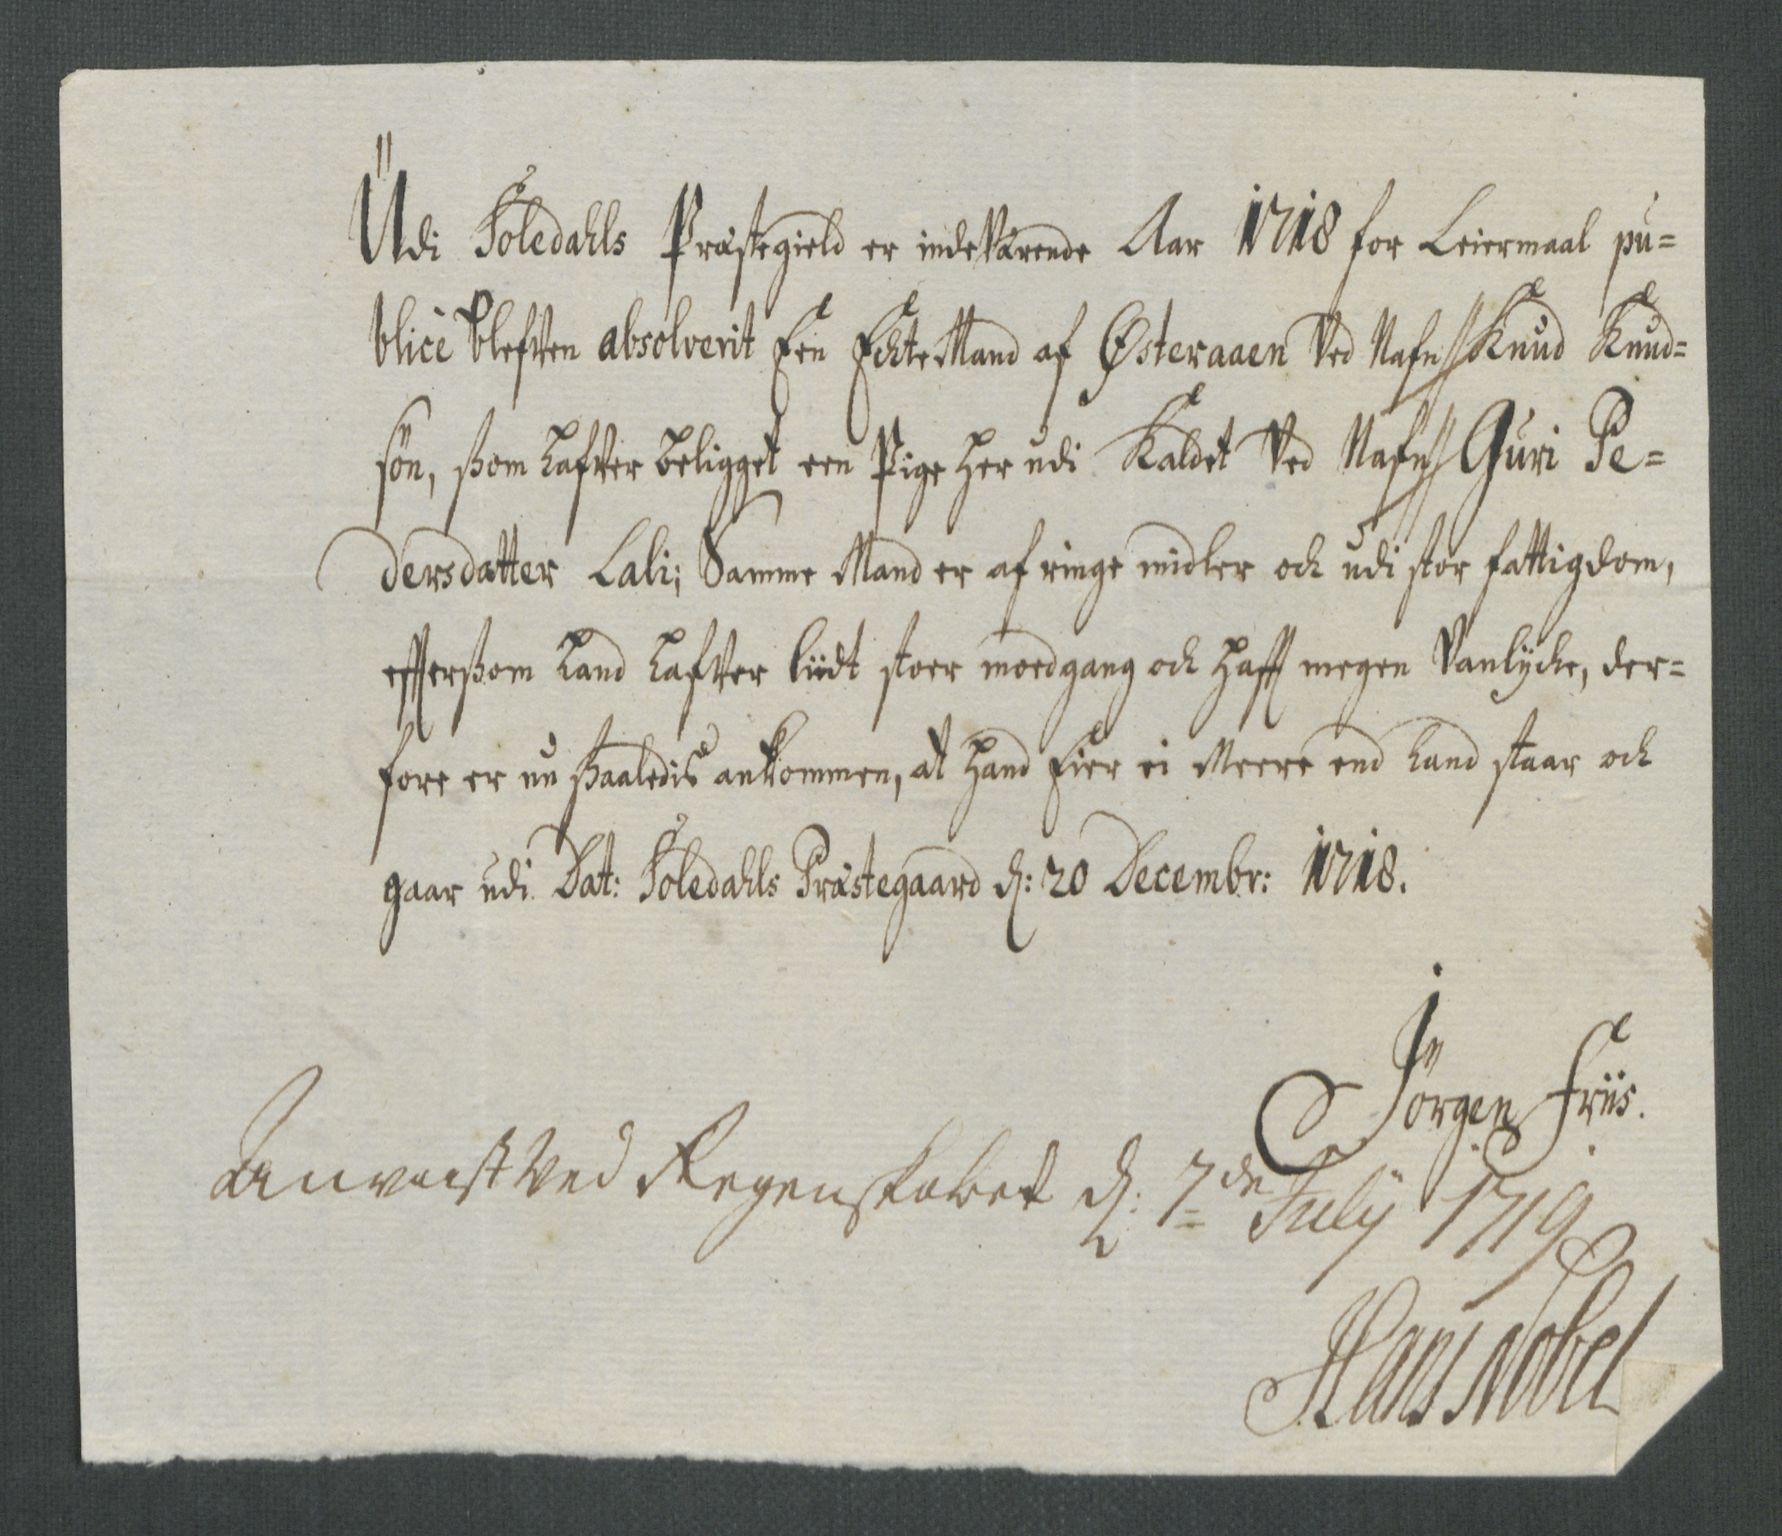 Udi Soledahls Præstegield er indeværende Aar 1718 for Leiermaal pu=
blicè blefven absolverit Een Echte Mand af Østeraaen Ved Nafn // Knud Knud=
søn, ßom hafver beligget een Pige her udi Kaldet Ved Nafn // Guri Pe=
dersdatter Lali; Samme Mand er af ringe midler och udi stor fattigdom,
efftersom hand hafver liidt stoer moedgang och hafft megen Vanlÿche, der=
fore er nu ßaaledis ankommen, at hand Eier ei Meere end hand staar och
gaar udi. Dat: Soledahls Præstegaard d: 20 Decembr: 1718.
Jörgen Friis.
Anvvist Ved Regenskabet d: 7de Julÿ 1719
Hans Nobel